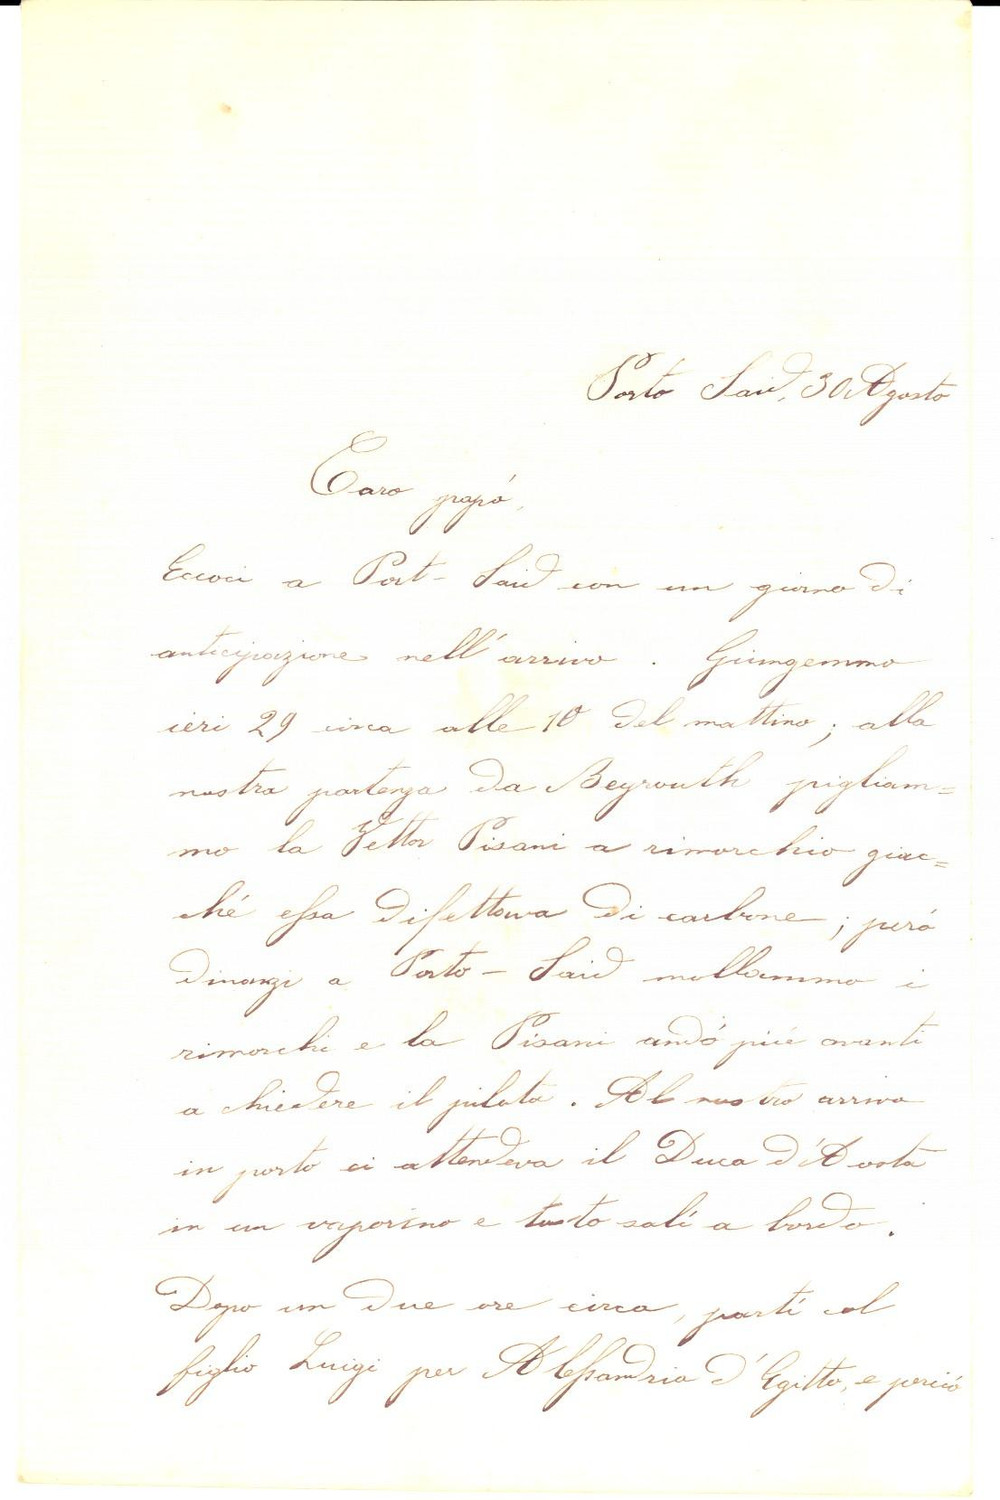 Porto Said, 30 Agosto
Caro papá,
Eccoci a Port-Said con un giorno di
anticipazione nell'arrivo. Giungemmo
ieri 29 circa alle 10 del mattino; alla
nostra partenza da Beyrouth pigliam=
mo la Vettor Pisani a rimorchio giac=
ché essa difettava di carbone; peró
dinanzi a Porto-Said mollammo i
rimorchi e la Pisani andó piú avanti
a chiedere il pilota. Al nostro arrivo
in porto ci attendeva il Duca d'Aosta
in un vaporino e tosto salí a bordo.
Dopo un due ore circa, partí col
figlio Luigi per Alessandria d'Egitto, e perció